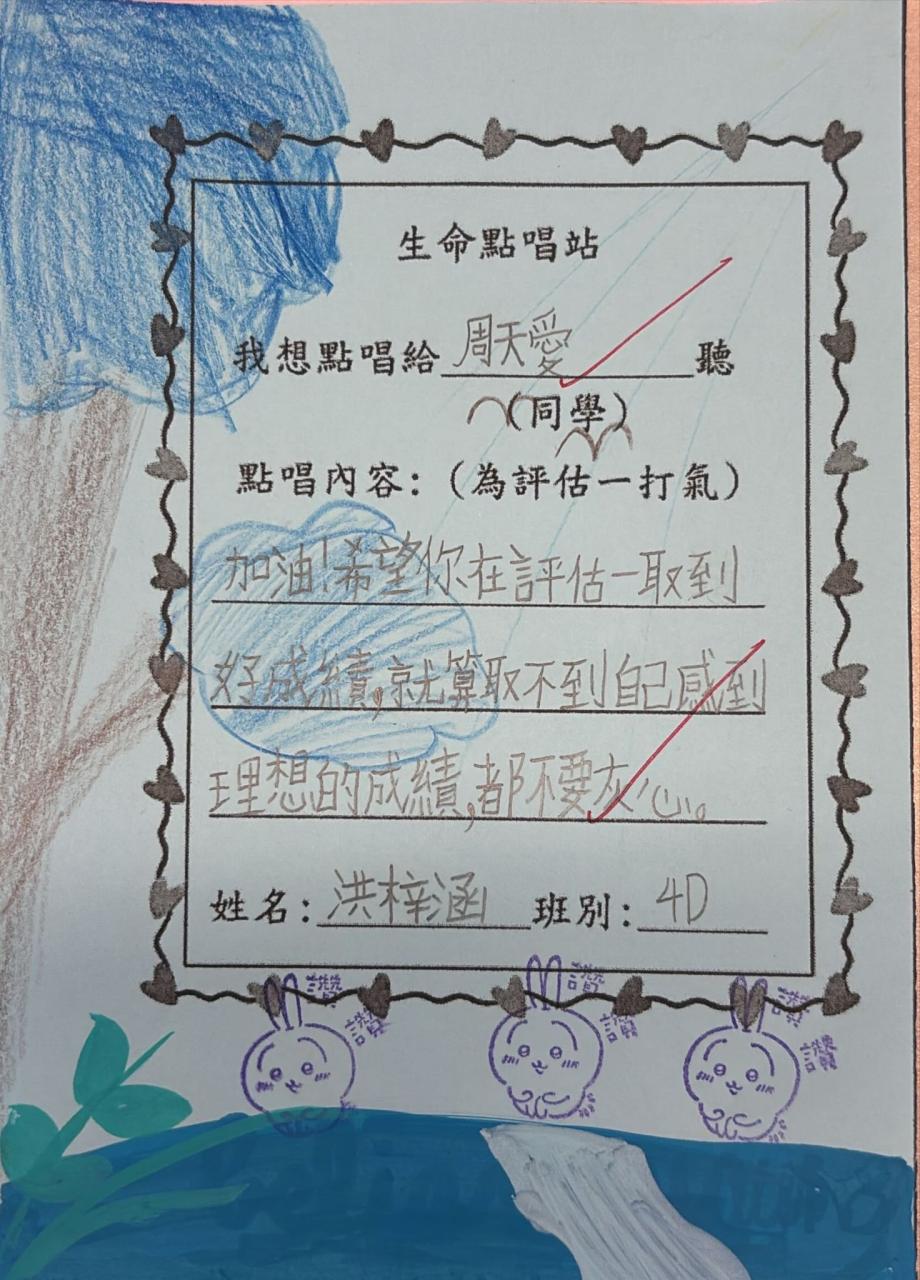 生命點唱站
我想點唱給周天愛聽
(同學)
點唱內容:(為評估一打氣)
加油!希望你在評估一取到
好成績,就算取不到自己感到
理想的成績,都不要灰心。
姓名:洪梓涵 班別:4D
讚 讚 讚
讚 讚 讚